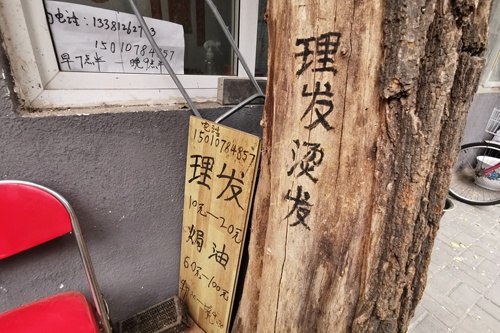 电话: 133812627
15010784857
早7点半—晚9点半
理发烫发
电话
15010784857
理发
10元—20元
焗油
60元—100元